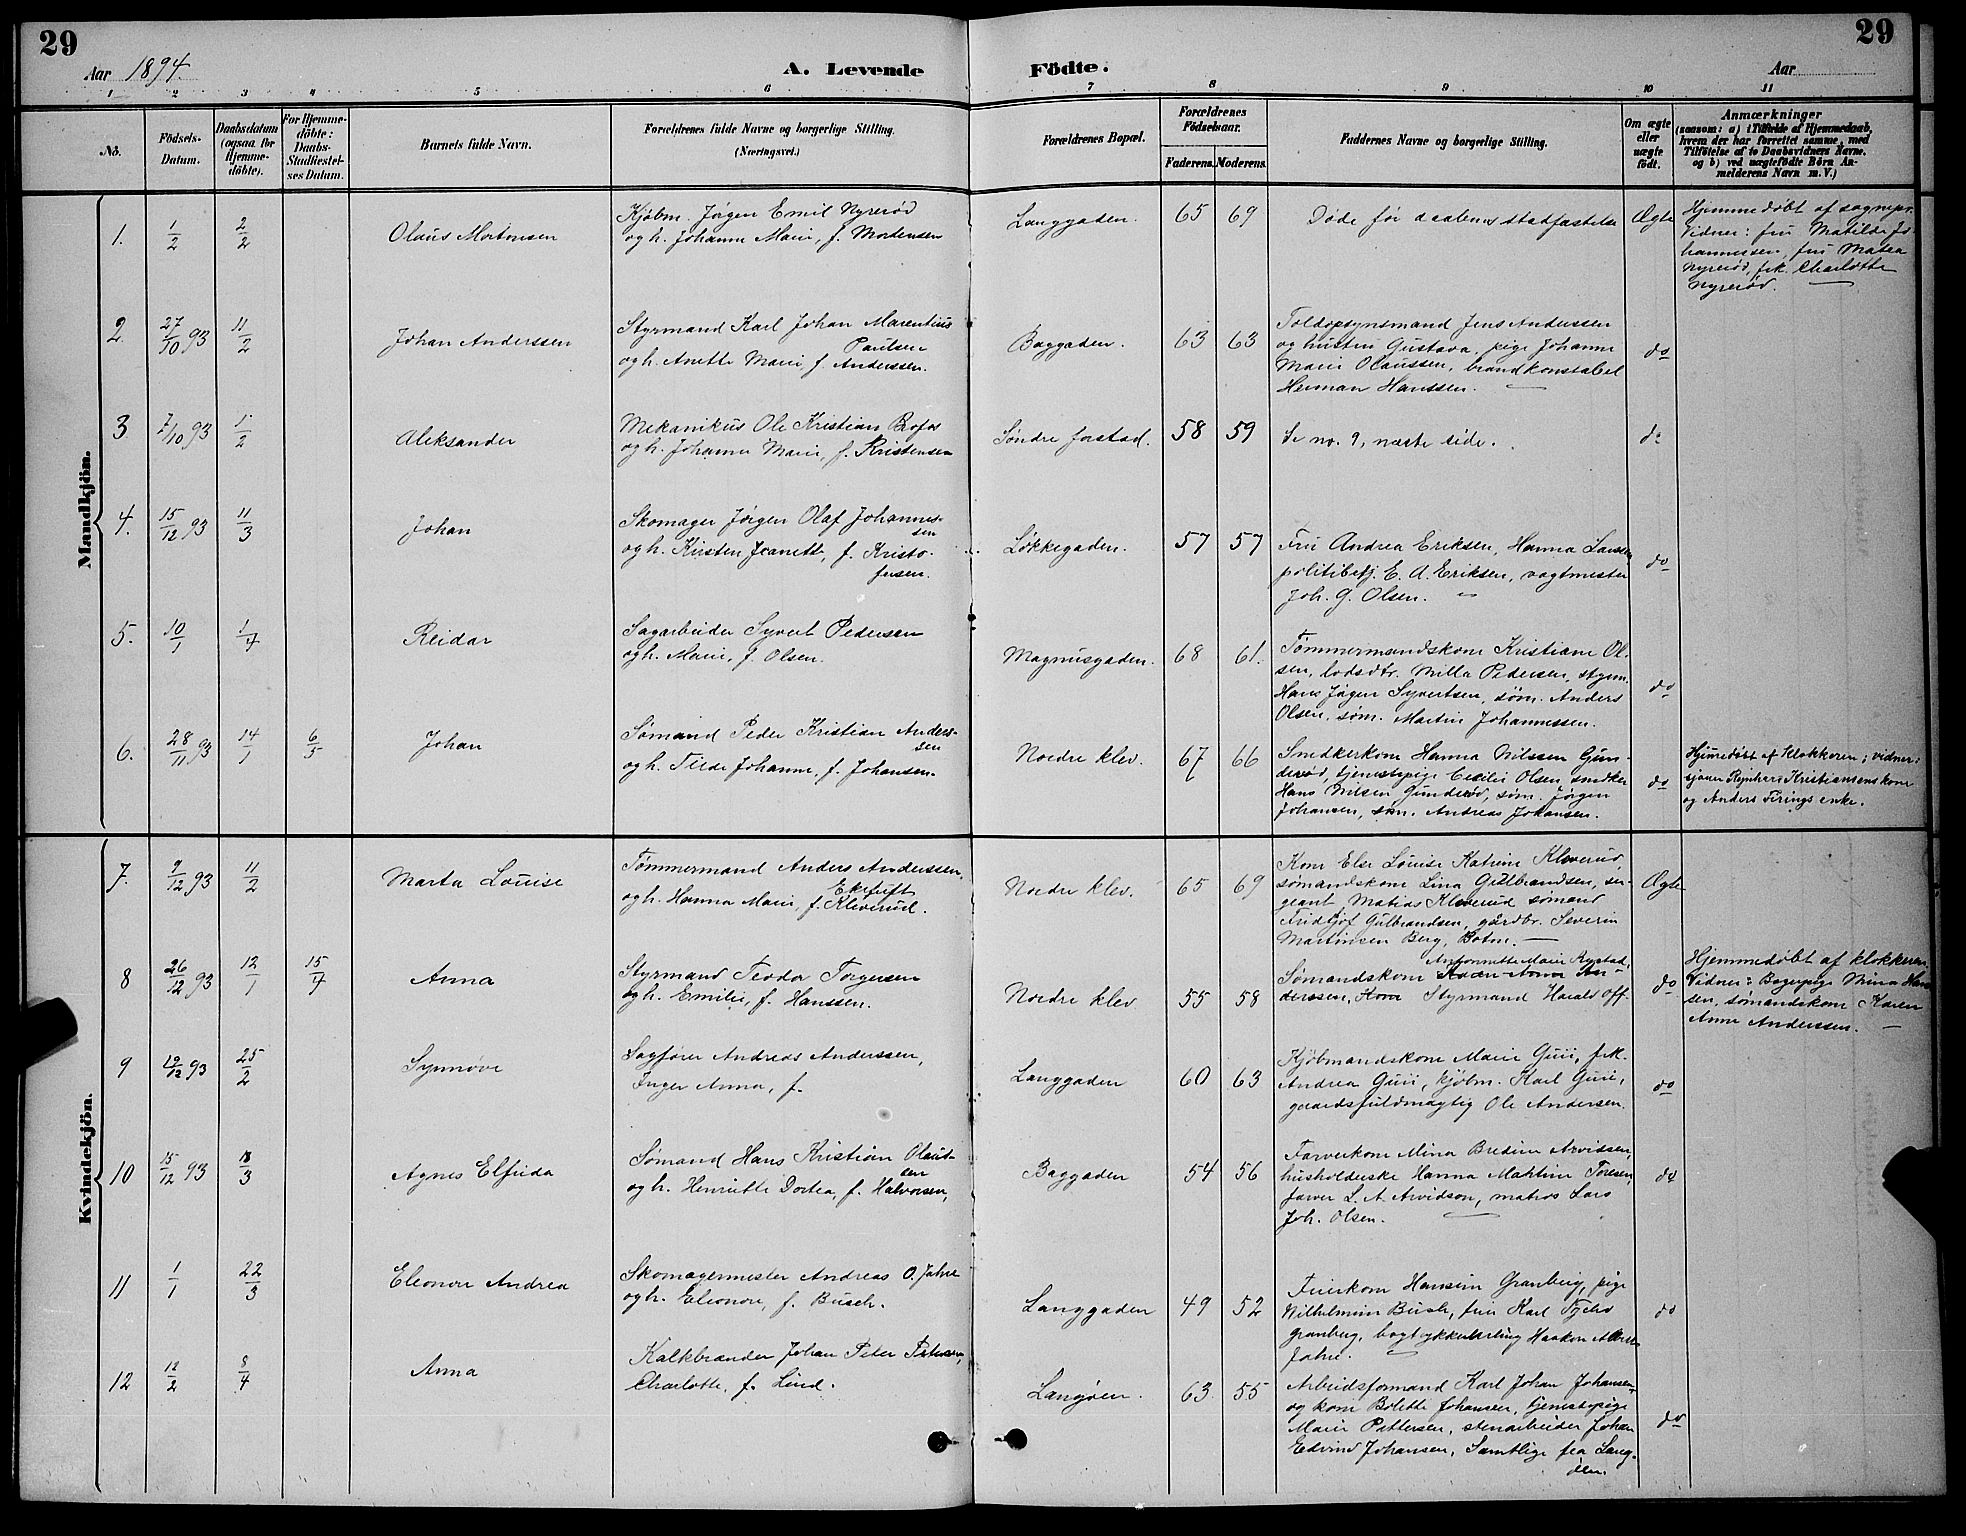 29
29
Aar 1894.
A. Levende
Födte.
Aar
1 2 3 4 5 6 7 8 9 10 11
No.
Födsels-
Datum.
Daabsdatum
(ogsaa for
Hjemme-
döbte).
For Hjemme-
döbte:
Daabs-
Stadfæstel-
ses Datum.
Barnets fulde Navn.
Forældrenes fulde Navne og borgerlige Stilling.
(Næringsvei.)
Forældrenes Bopæl.
Forældrenes
Födselsaar.
Faderens. Moderens.
Faddernes Navne og borgerlige Stilling.
Om ægte
eller
uægte
födt.
Anmærkninger
(saasom: a) i Tilfælde af Hjemmedaab,
hvem der har forrettet samme, med
Tilföielse af to Daabsvidners Navne,
og b) ved uægtefödte Börn An-
melderens Navn m. V.)
Mandkjön.
1. 1/2 2/2 Olaus Mortensen
Kjöbm. Jörgen Emil Nyreröd
og h. Johanne Marie, f. Mortensen
Langgaden. 65 69
Döde för daabens stadfæstelse
Ægte
Hjemmedöbt af sognepr.
Vidner: fru Matilde Jo-
hannessen, fru Matea
Nyreröd, frk. Charlotte
Nyreröd.
2 27/10 93 11/2 Johan Anderssen
Styrmand Karl Johan Marentius
Paulsen
og h. Anette Marie f. Anderssen.
Baggaden. 63 63
Toldopsynsmand Jens Anderssen
og hustru Gustava, pige Johanne
Marie Olaussen, brandkonstabel
Herman Hanssen.
do
3 7/10 93 1/2 Aleksander
Mekanikus Ole Kristian Bofos
og h. Johanne Marie, f. Kristensen
Söndre forstad. 58 59
Se no. 9, næste side.
do
4. 15/12 93 11/3 Johan
Skomager Jörgen Olaf Johannes-
sen
og h. Kirsten Jeanett, f. Kristo-
fersen.
Lökkegaden. 57 57
Fru Andrea Eriksen, Hanna Larsen,
politibetj. E. A. Eriksen, vagtmester
Joh. G. Olsen.
do
5. 10/1 1/4 Reidar
Sagarbeider Syvert Pedersen
og h. Marie, f. Olsen.
Magnusgaden. 68 61.
Tömmermandskone Kristiane Ol-
sen, lodsdtr. Milla Pedersen, styrm.
Hans Jörgen Syvertsen, söm. Anders
Olsen, söm. Martin Johannessen.
do
6. 28/11 93 14/1 6/5 Johan
Sömand Peder Kristian Anders-
sen
og h. Tilde Johanne, f. Johansen.
Nordre klev. 67 66
Snedkerkone Hanna Nilssen Gun-
deröd, tjenestepige Cecilie Olsen, snedker
Hans Nilsen Gunderöd, söm. Jörgen
Johansen, söm. Andreas Johansen.
do
Hjemmedöbt af klokkeren; vidner:
Kristiansens kone
og Anders Firings enke.
Kvindekjön.
7. 9/12 93 11/2 Marta Louise
Tömmermand Anders Anderssen,
Ekefift
og h. Hanna Marie, f. Kleverud.
Nordre klev. 65 69
Kone Else Louise Katrine Kleverud,
sömandskone Lina Gulbrandsen, ser-
geant Matias Kleverud sömand
Fridtjof Gulbrandsen, gårdbr. Severin
Martinsen Berg, Botne.
Ægte
8 26/12 93 12/1 15/4 Anna
Styrmand Teodor Torgersen
og h. Emilie, f. Hanssen.
Nordre klev 55 58
Antonnette Marie Rystad,
Sömandskone Karen Anna An-
derssen, Kone Styrmand Harald Off.
do
Hjemmedöbt af klokkeren.
Vidner: Bagerpige Mina Han-
sen, sömandskone Karen
Anne Anderssen.
9 19/12 93 25/2 Synnöve
Sagförer Andreas Anderssen,
Inger Anna, f.
Langgaden 60 63
Kjöbmandskone Marie Guii, frk.
Andrea Guii, kjöbm. Karl Guii,
gaardsfuldmægtig Ole Andersen.
do
10 15/12 93 18/3 Agnes Elfrida
Sömand Hans Kristian Olaus-
sen
og h. Henriette Dortea, f. Halvorsen,
Baggaden 54 56
Farverkone Mina Bredine Arvidssen,
husholderske Hanna Maktine Toresen,
farver L. A. Arvidson, matros Lars
Joh. Olsen.
do
11 1/1 22/3 Eleonore Andrea
Skomagermester Andreas O. Jahre
og h. Eleonore, f. Busch.
Langgaden 49 52
Feierkone Hansine Granberg, pige
Wilhelmine Bush, feier Karl Tycho
Granberg, bogtykkerlærling Haakon
Jahre.
do
12 12/2 8/4 Anna
Kalkbrænder Johan Peter Petersen,
Charlotte, f. Lind.
Langöen. 63 55
Arbeidsformand Karl Johan Johansen,
og kone Bolette Johansen, tjenestepige
Marie Pettersen, stenarbeider Johan
Edvind Johansen, Samtlige fra Lang-
öen.
do